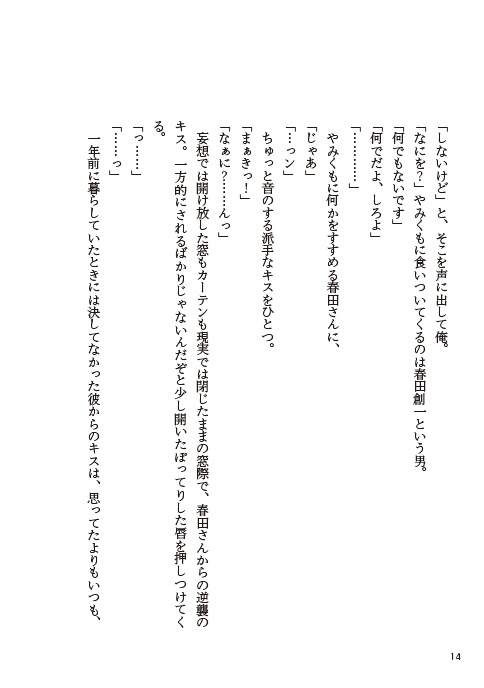 「しないけど」と、そこを声に出して俺。
「なにを？」やみくもに食いついてくるのは春田創一という男。
「何でもないです」
「何でだよ、しろよ」
「…………」
やみくもに何かをすすめる春田さんに、
「じゃあ」
「…っン」
ちゅっと音のする派手なキスをひとつ。
「まぁきっ！」
「なぁに？……んっ」
妄想では開け放した窓もカーテンも現実では閉じたままの窓際で、春田さんからの逆襲の
キス。一方的にされるばかりじゃないんだぞと少し開いたぽってりした唇を押しつけてく
る。
「っ……」
「……っ」
一年前に暮らしていたときには決してなかった彼からのキスは、思ってたよりもいつも、
14